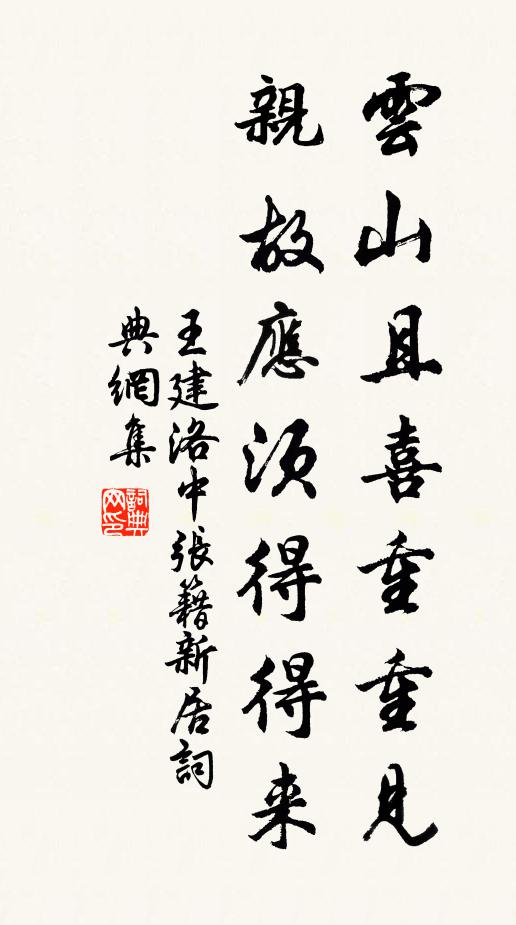 雲山且喜重重見
親故應須得得来
王建洛中張籍新居詞
典網集
詞典網印